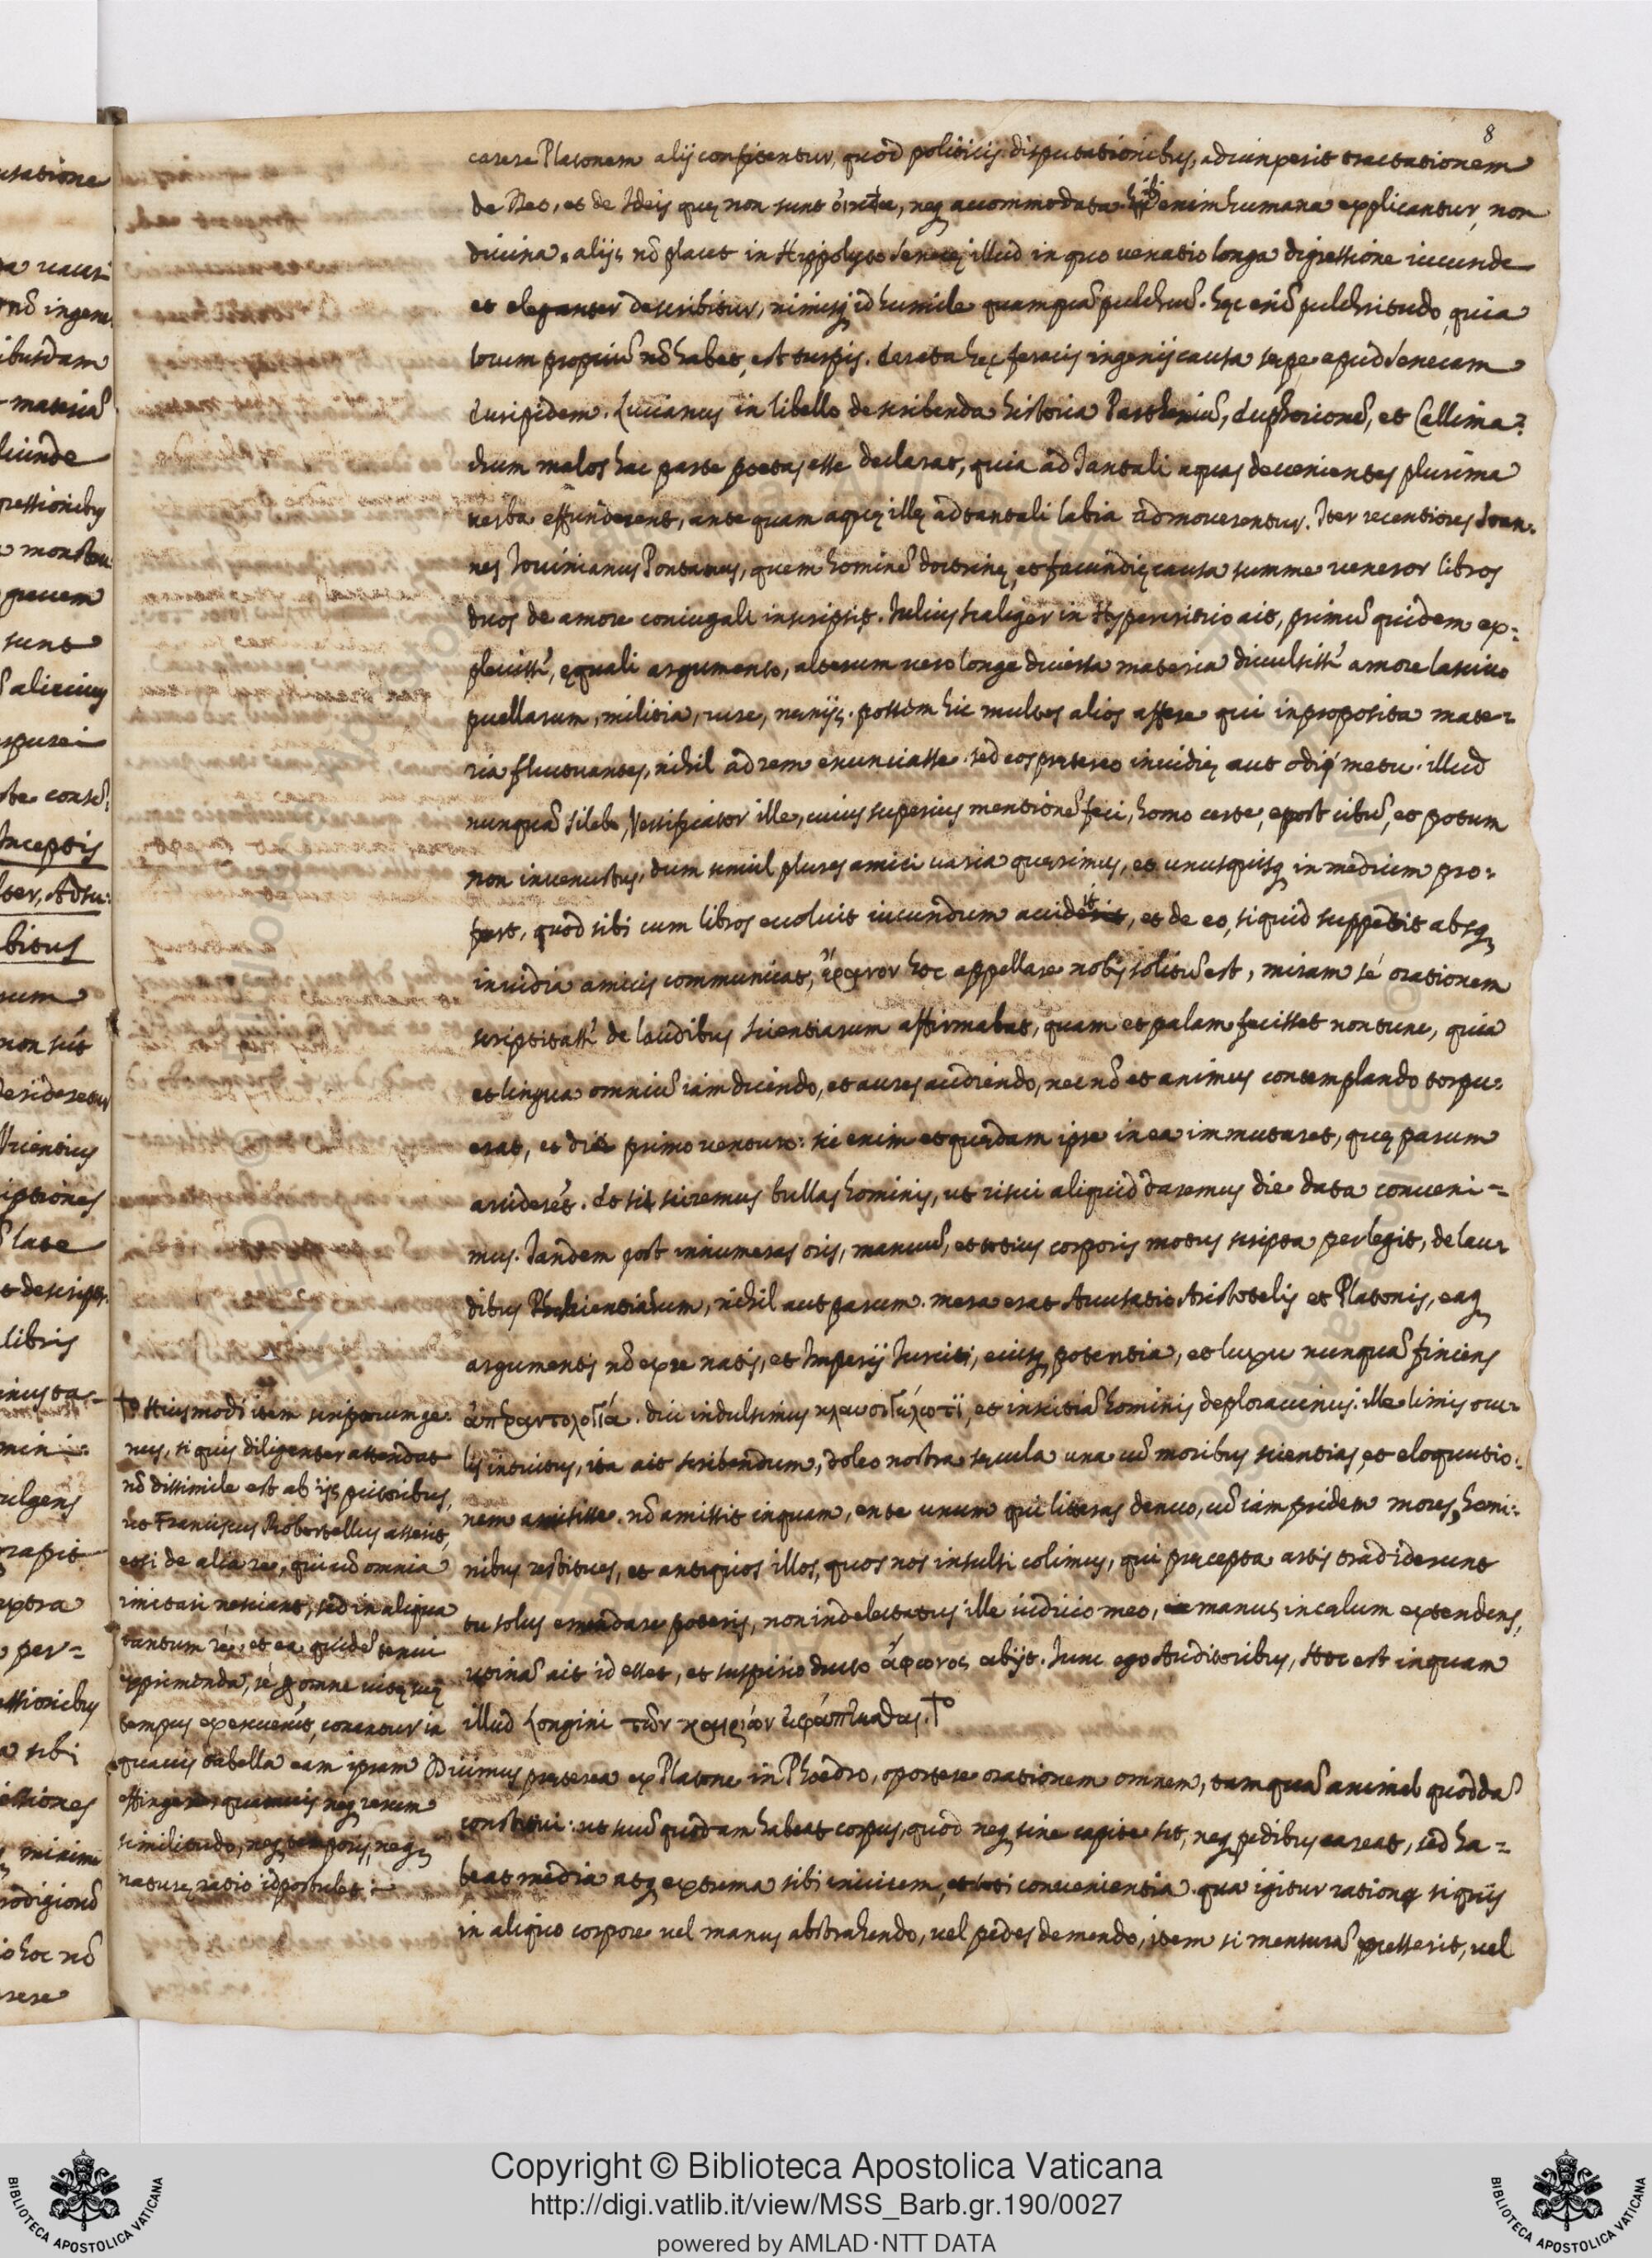 8
carere Platonem alij confitentur, quod politicis disputationibus, adiunxerit tractationem
de Deo, et de Ideis quę non sunt neq; accommodata. ibi enim humana explicantur, non
diuina. alijs nō placet in Hippolyto Senecę illud in quo uenatio longa digressione iucunde
et eleganter describitur, nimisq; id humile quamquā pulchrū. hęc enī pulchritudo, quia
locum propriū nō habet, est turpis. Errata hęc feracis ingenij causa sępe apud Senecam
Euripidem. Lucianus in libello de scribenda historia Partheniū, Euphorionē, et Callima-
chum malos hac parte poetas esse declarat, quia ad Tantali aquas deuenientes plurima
uerba effunderent, ante quam aquę illę ad tantali labia admouerentur. Iter recentiores Ioan-
nes Iouinianus Pontanus, quem hominē doctrinę, et facundię causa summe ueneror libros
duos de amore coniugali inscripsit. Iulius scaliger in Hypercritico ait, primū quidem ex-
pleuissē, ęquali argumento, alterum uero longe diuersa materia diuulsissē amore lasciuo
puellarum, militia, rure, nęnijs. possem hic multos alios afferre qui in proposita mate-
ria fluctuantes, nihil ad rem enunciasse. sed eos pretereo inuidię aut odij metu. illud
nunquā silebo, Versificator ille, cuius superius mentionē feci, homo certe, post cibū, et potum
non inuenustus, dum simul plures amici uaria querimus, et unusquisq; in medium pro-
fert, quod sibi cum libros euoluit iucundum accidit, et de eo, si quid suppetit absq;
inuidia amicis communicat, hoc appellare nobis solitū est, miram sé orationem
scriptitassē de laudibus scientiarum affirmabat, quam et palam fecisset non tunc, quia
et lingua omniū iam dicendo, et aures audiendo, nec nō et animus contemplando torpu-
erat, et die primo uenturo: sic enim et quędam ipse in ea immutaret, quę parum
arriderēt. Et si sciremus bullas hominis, ut risui aliquid daremus die data conueni-
mus. Tandem post innumeras oris, manuū, et totius corporis motus scripta perlegit, de lau-
dibus scientiarum, nihil aut parum. mera erat Accusatio Aristotelis et Platonis, eaq;
argumentis nō ex re natis, et Imperij Turcici, eiusq; potentia, et luxu nunquā finiens
diu indulsimus et inscitiā hominis deplorauimus. ille limis ocu-
lis intuitus, ita ait scribendum, doleo nostra sęcula una cū moribus scientias, et eloquutio-
nem amisisse. nō amittit inquam, ente unum qui literas denuo, cū iam pridem mores, homi-
nibus restitues, et antiquos illos, quos nos insulsi colimus, qui pręcepta artis tradiderunt
tu solus emendare poteris, non indelectatus ille iudicio meo, manus in cęlum extendens,
utinā ait id esset, et suspirio ducto ἄφωνος abijt. Tunc ego Auditoribus, Hoc est inquam
illud Longini τῶν
Diximus preterea ex Platone in Phoedro, oportere orationem omnem, tamquā animal quoddā
constitui: ut suū quoddam habeat corpus, quod neq; sine capite sit, neq; pedibus careat, sed ha-
beat media atq; extrema sibi inuicem, et toti conuenientia. qua igitur ratione siquis
in aliquo corpore uel manus abstrahendo, uel pedes demendo, item si mensurā pręsserit, uel
Huiusmodi item scriptorum ge-
nus, si quis diligenter attendat
nō dissimile est ab ijs pictoribus,
ut Franciscus Robortellus asserit,
etsi de alia re, qui cū omnia
imitari nesciant, sed in aliqua
tantum re, et ea quidē tenui
exprimenda, sé omne uitę suę
tempus exercuerīt, conentur in
quauis tabella eam ipsam
effingere, quamuis neq; rerum
similitudo, neq; temporis, neq;
naturę ratio id postulet.
Copyright © Biblioteca Apostolica Vaticana
http://digi.vatlib.it/view/MSS_Barb.gr.190/0027
powered by AMLAD·NTT DATA
BIBLIOTECA APOSTOLICA VATICANA
BIBLIOTECA APOSTOLICA VATICANA